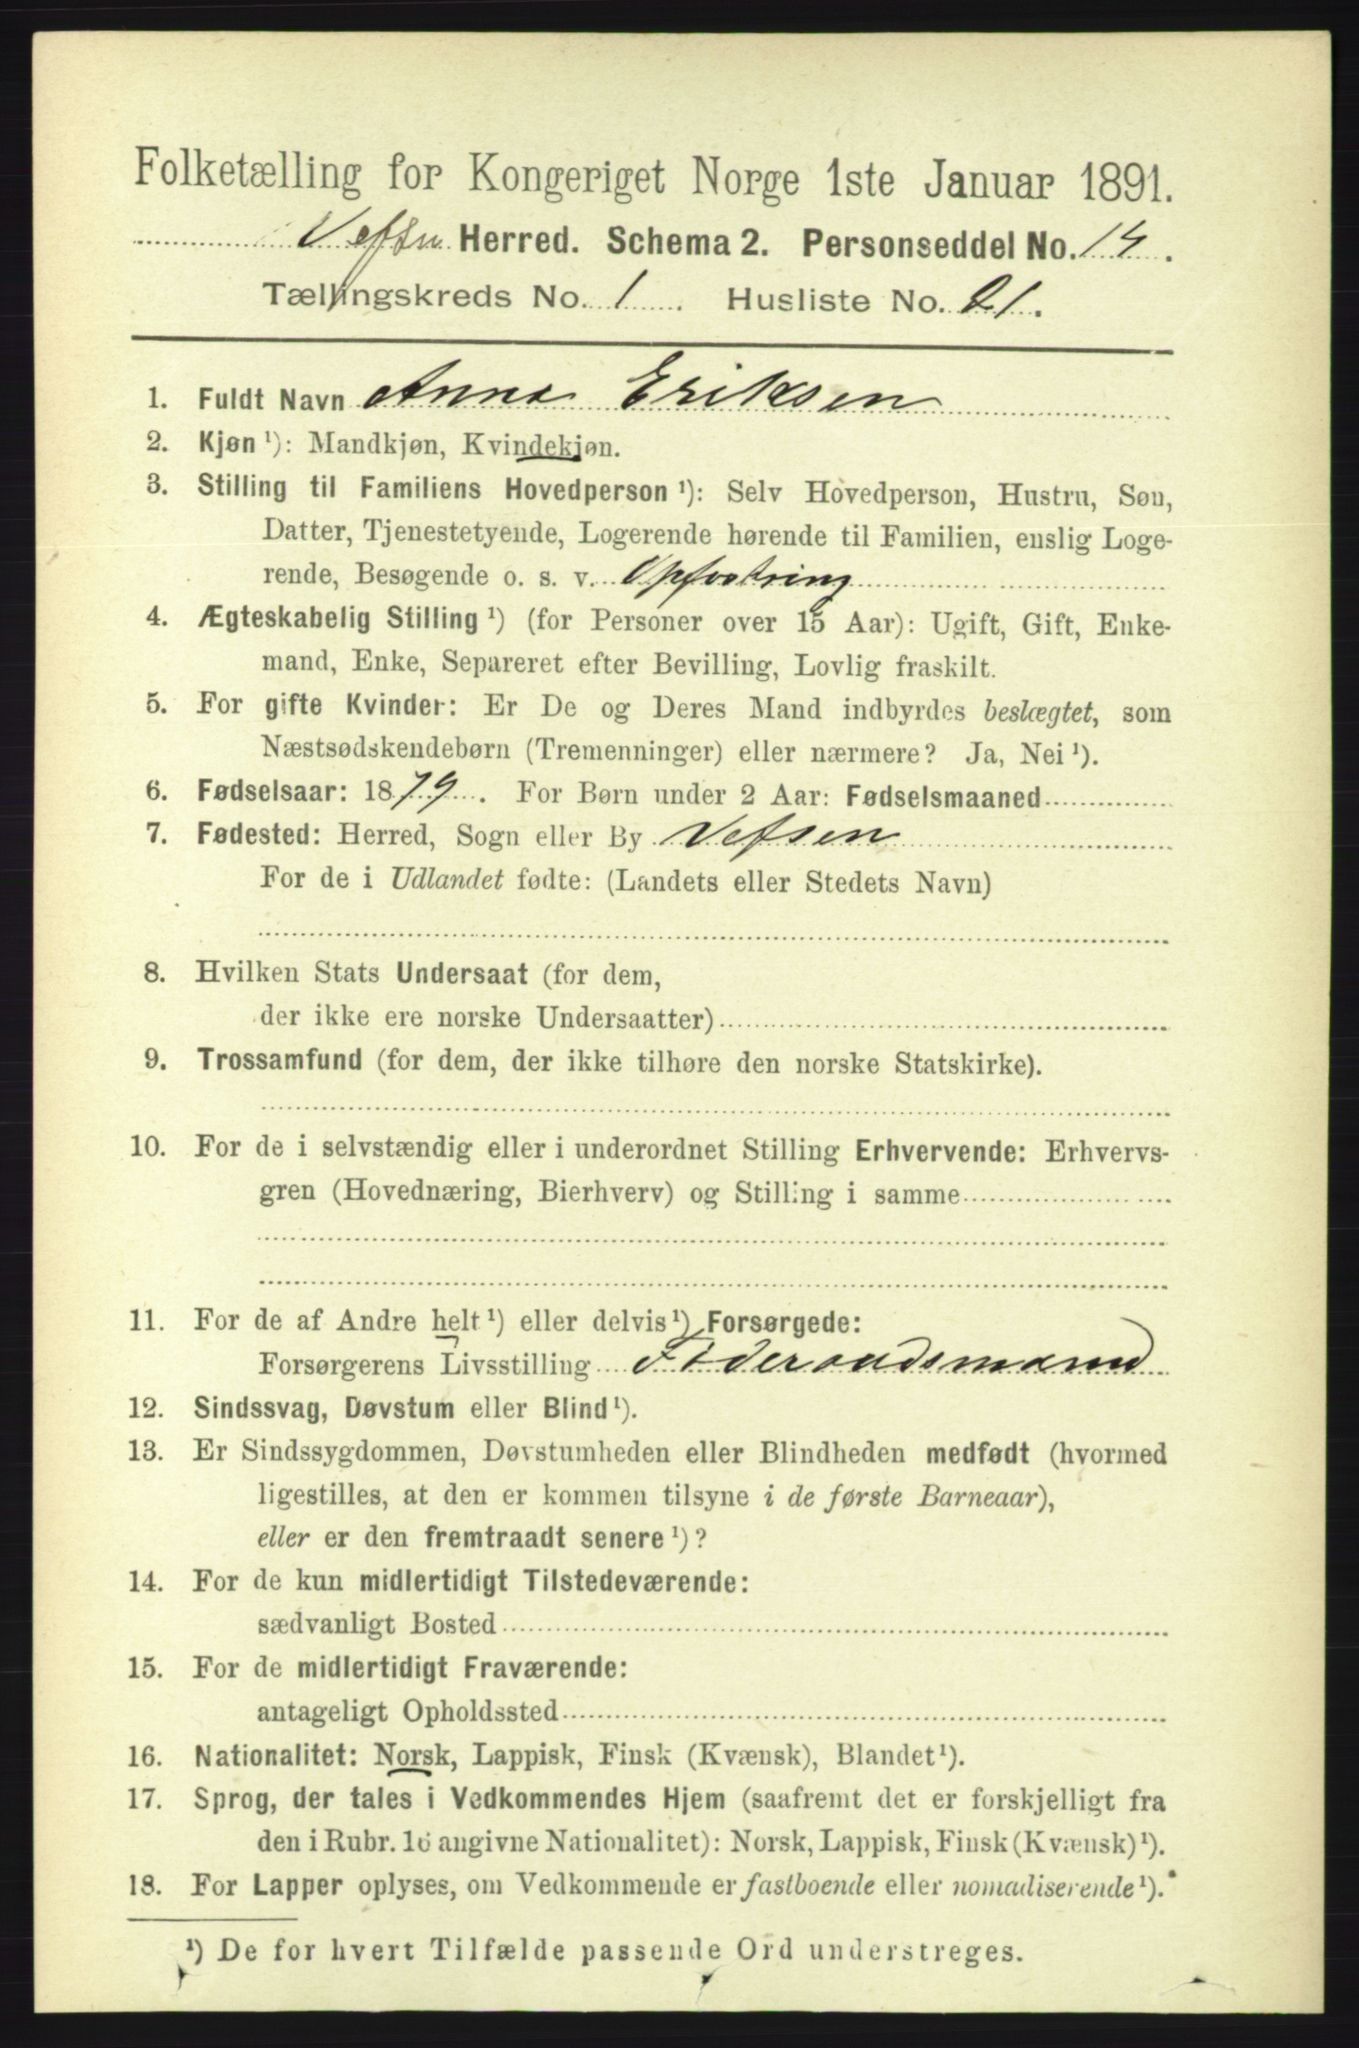 Folketælling for Kongeriget Norge 1ste Januar 1891.
Vefsn Herred. Schema 2. Personseddel No. 14.
Tællingskreds No. 1. Husliste No. 21.
1. Fuldt Navn Anna Eriksen
2. Kjøn¹): Mandkjøn, Kvindekjøn.
3. Stilling til Familiens Hovedperson¹): Selv Hovedperson, Hustru, Søn,
Datter, Tjenestetyende, Logerende hørende til Familien, enslig Loge-
rende, Besøgende o. s. v. Opfostring
4. Ægteskabelig Stilling¹) (for Personer over 15 Aar): Ugift, Gift, Enke-
mand, Enke, Separeret efter Bevilling, Lovlig fraskilt.
5. For gifte Kvinder: Er De og Deres Mand indbyrdes beslægtet, som
Næstsødskendebørn (Tremenninger) eller nærmere? Ja, Nei¹).
6. Fødselsaar: 1879. For Børn under 2 Aar: Fødselsmaaned
7. Fødested: Herred, Sogn eller By Vefsen
For de i Udlandet fødte: (Landets eller Stedets Navn)
8. Hvilken Stats Undersaat (for dem,
der ikke ere norske Undersaatter)
9. Trossamfund (for dem, der ikke tilhøre den norske Statskirke).
10. For de i selvstændig eller i underordnet Stilling Erhvervende: Erhvervs-
gren (Hovednæring, Bierhverv) og Stilling i samme
11. For de af Andre helt¹) eller delvis¹) Forsørgede:
Forsørgerens Livsstilling Føderaadsmand
12. Sindssvag, Døvstum eller Blind¹).
13. Er Sindssygdommen, Døvstumheden eller Blindheden medfødt (hvormed
ligestilles, at den er kommen tilsyne i de første Barneaar),
eller er den fremtraadt senere¹)?
14. For de kun midlertidigt Tilstedeværende:
sædvanligt Bosted
15. For de midlertidigt Fraværende:
antageligt Opholdssted
16. Nationalitet: Norsk, Lappisk, Finsk (Kvænsk), Blandet¹).
17. Sprog, der tales i Vedkommendes Hjem (saafremt det er forskjelligt fra
den i Rubr. 16 angivne Nationalitet): Norsk, Lappisk, Finsk (Kvænsk)¹).
18. For Lapper oplyses, om Vedkommende er fastboende eller nomadiserende¹).
¹) De for hvert Tilfælde passende Ord understreges.